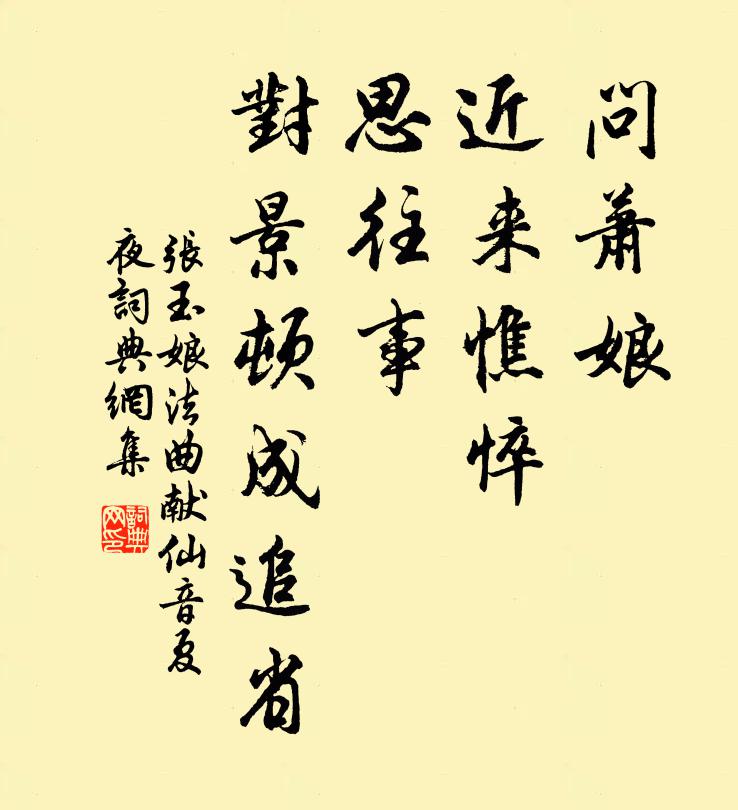 問蕭娘
近来憔悴
思往事
對景頓成追省
張玉娘法曲献仙音夏
夜詞典網集
詞典
网印